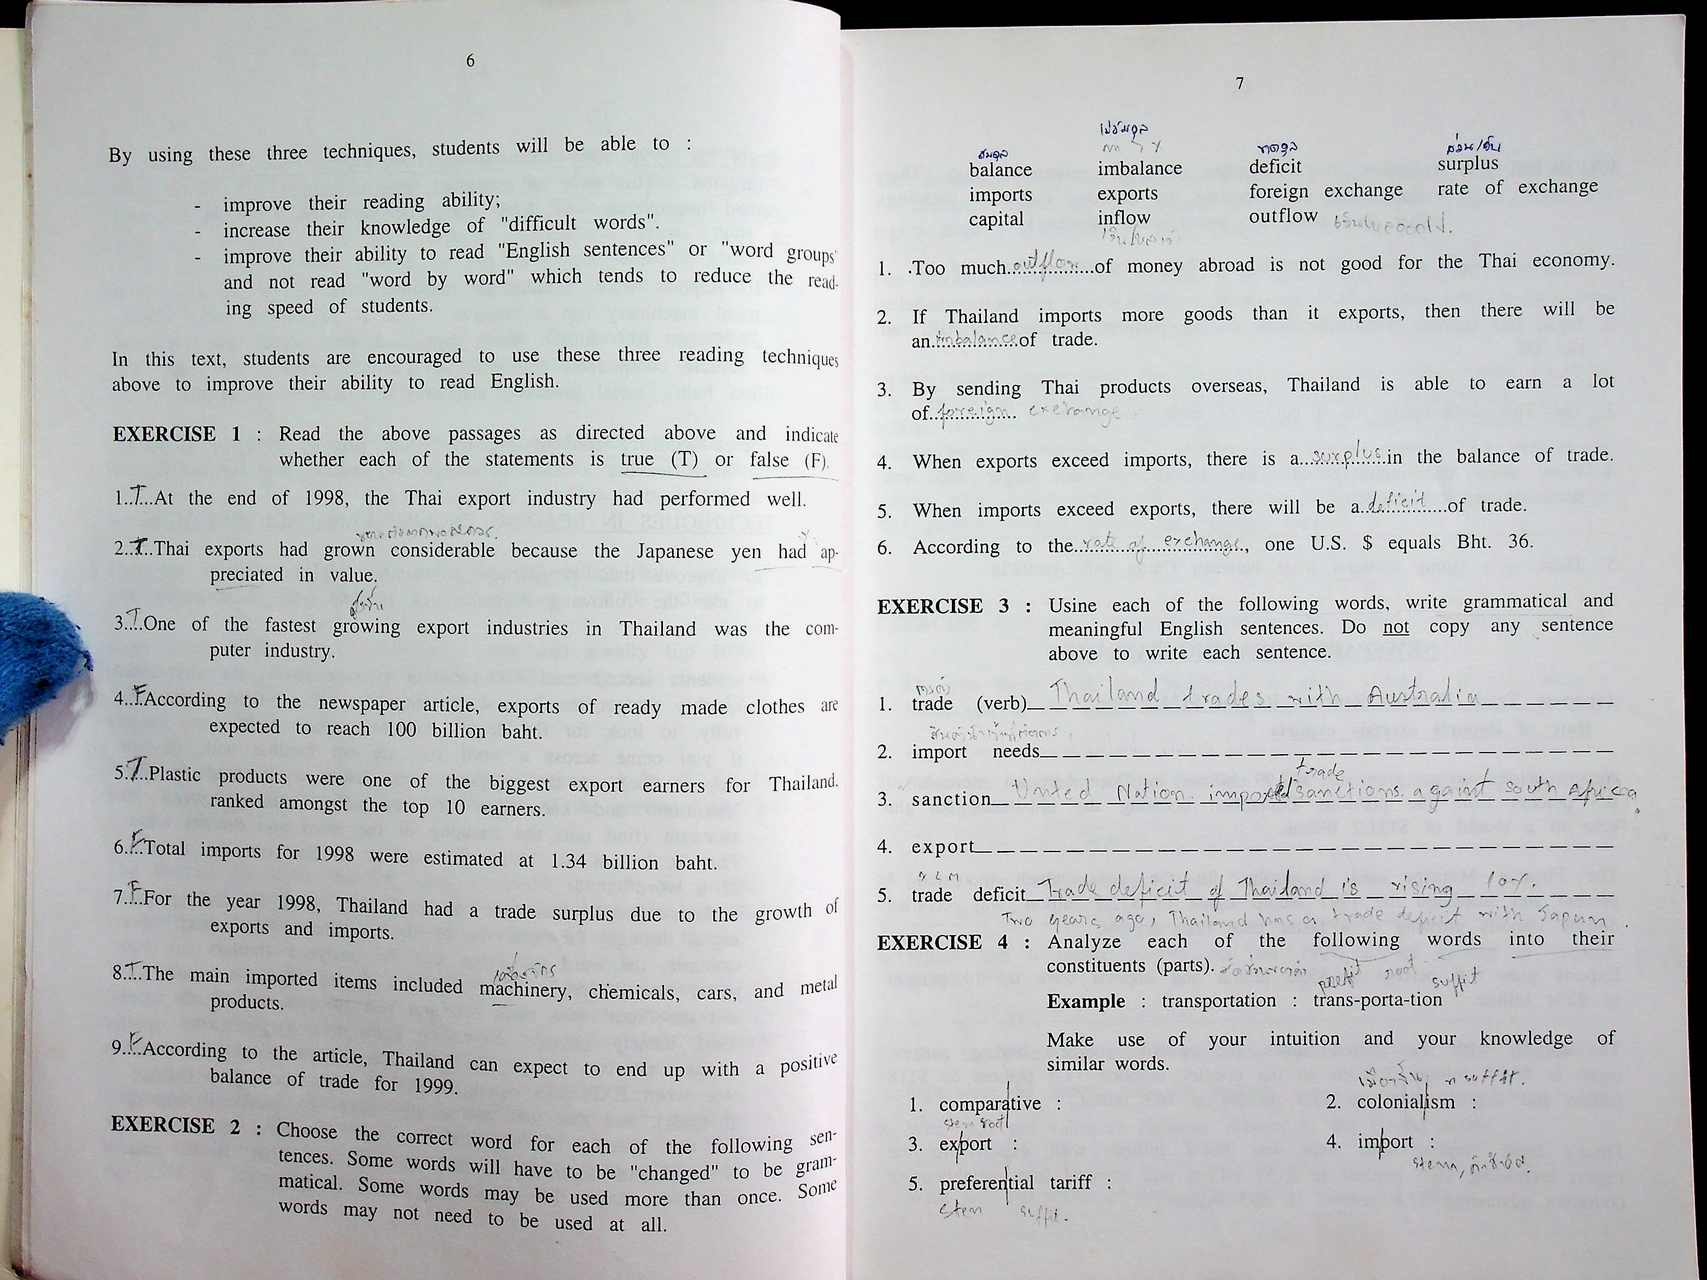 6
By using these three techniques, students will be able to :
- improve their reading ability;
- increase their knowledge of "difficult words".
- improve their ability to read "English sentences" or "word groups"
and not read "word by word" which tends to reduce the read-
ing speed of students.
In this text, students are encouraged to use these three reading techniques
above to improve their ability to read English.
EXERCISE 1 : Read the above passages as directed above and indicate
whether each of the statements is true (T) or false (F).
1..T..At the end of 1998, the Thai export industry had performed well.
2..T..Thai exports had grown considerable because the Japanese yen had ap-
preciated in value.
สูงขึ้น
3..T..One of the fastest growing export industries in Thailand was the com-
puter industry.
4..F..According to the newspaper article, exports of ready made clothes are
expected to reach 100 billion baht.
5..T..Plastic products were one of the biggest export earners for Thailand.
ranked amongst the top 10 earners.
6..F..Total imports for 1998 were estimated at 1.34 billion baht.
7..F..For the year 1998, Thailand had a trade surplus due to the growth of
exports and imports.
เครื่องจักร
8..T..The main imported items included machinery, chemicals, cars, and metal
products.
9..F..According to the article, Thailand can expect to end up with a positive
balance of trade for 1999.
EXERCISE 2 : Choose the correct word for each of the following sen-
tences. Some words will have to be "changed" to be gram-
matical. Some words may be used more than once. Some
words may not need to be used at all.
7
สมดุล ไม่สมดุล ขาดดุล ส่วนเกิน
balance imbalance deficit surplus
imports exports foreign exchange rate of exchange
capital inflow outflow
1. Too much..outflow...of money abroad is not good for the Thai economy.
2. If Thailand imports more goods than it exports, then there will be
an..imbalance..of trade.
3. By sending Thai products overseas, Thailand is able to earn a lot
of..foreign.. exchange
4. When exports exceed imports, there is a..surplus..in the balance of trade.
5. When imports exceed exports, there will be a..deficit....of trade.
6. According to the..rate of exchange.., one U.S. $ equals Bht. 36.
EXERCISE 3 : Usine each of the following words, write grammatical and
meaningful English sentences. Do not copy any sentence
above to write each sentence.
1. trade (verb) Thailand trades with Australia
2. import needs
trade
3. sanction United Nation. imposed sanctions against south Africa.
4. export
5. trade deficit Trade deficit of Thailand is rising 10%.
Two years ago, Thailand has a trade deficit with Japan.
EXERCISE 4 : Analyze each of the following words into their
constituents (parts).
root suffix
Example : transportation : trans-porta-tion
Make use of your intuition and your knowledge of
similar words.
1. comparative :
2. colonialism :
stem root
3. export :
4. import :
stem,
5. preferential tariff :
stem suffix.